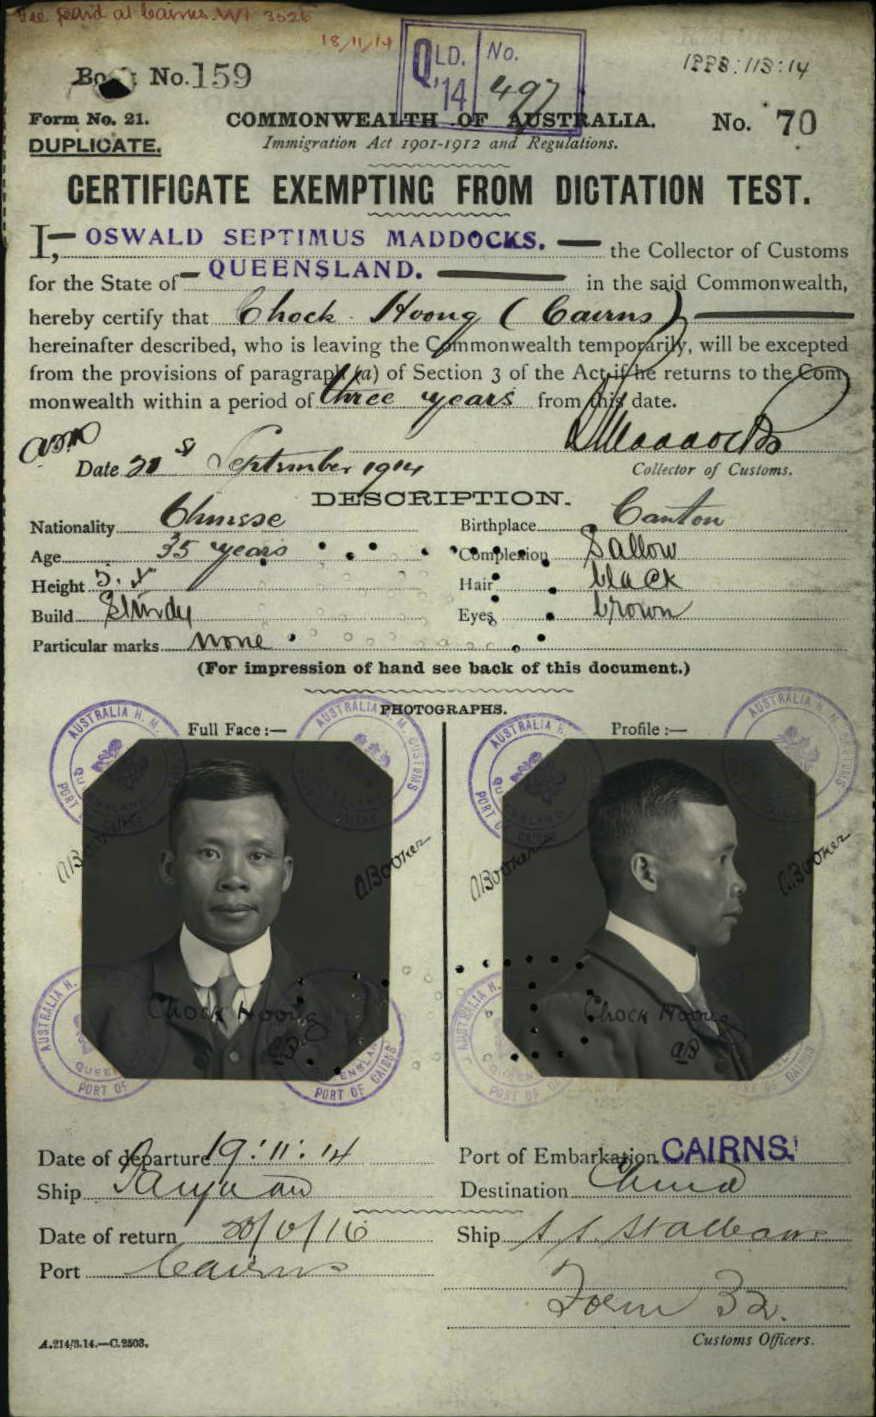 Fee paid at Cairns.
18/11/14
QLD. No.
'14 497
Book No. 159
Form No. 21.
COMMONWEALTH OF AUSTRALIA.
No. 70
DUPLICATE.
Immigration Act 1901-1912 and Regulations.
CERTIFICATE EXEMPTING FROM DICTATION TEST.
I, OSWALD SEPTIMUS MADDOCKS. the Collector of Customs
for the State of QUEENSLAND. in the said Commonwealth,
hereby certify that Chock Hoong (Cairns)
hereinafter described, who is leaving the Commonwealth temporarily, will be excepted
from the provisions of paragraph (a) of Section 3 of the Act if he returns to the Com-
monwealth within a period of three years from this date.
Date September 1914
Collector of Customs.
DESCRIPTION.
Nationality Chinese Birthplace Canton
Age 35 years Complexion Sallow
Height Hair black
Build Sturdy Eyes brown
Particular marks none
(For impression of hand see back of this document.)
PHOTOGRAPHS.
Full Face :— Profile :—
AUSTRALIA H. M. CUSTOMS
PORT OF CAIRNS
QUEENSLAND
A Booker A Booker A Booker A Booker
Chock Hoong Chock Hoong
AB AB
Date of departure 19 : 11 : 14 Port of Embarkation CAIRNS.
Ship Taiyuan Destination China
Date of return Ship S.S. St Albans
Port Cairns
Form 32.
A.214/3.14.—C.2503. Customs Officers.